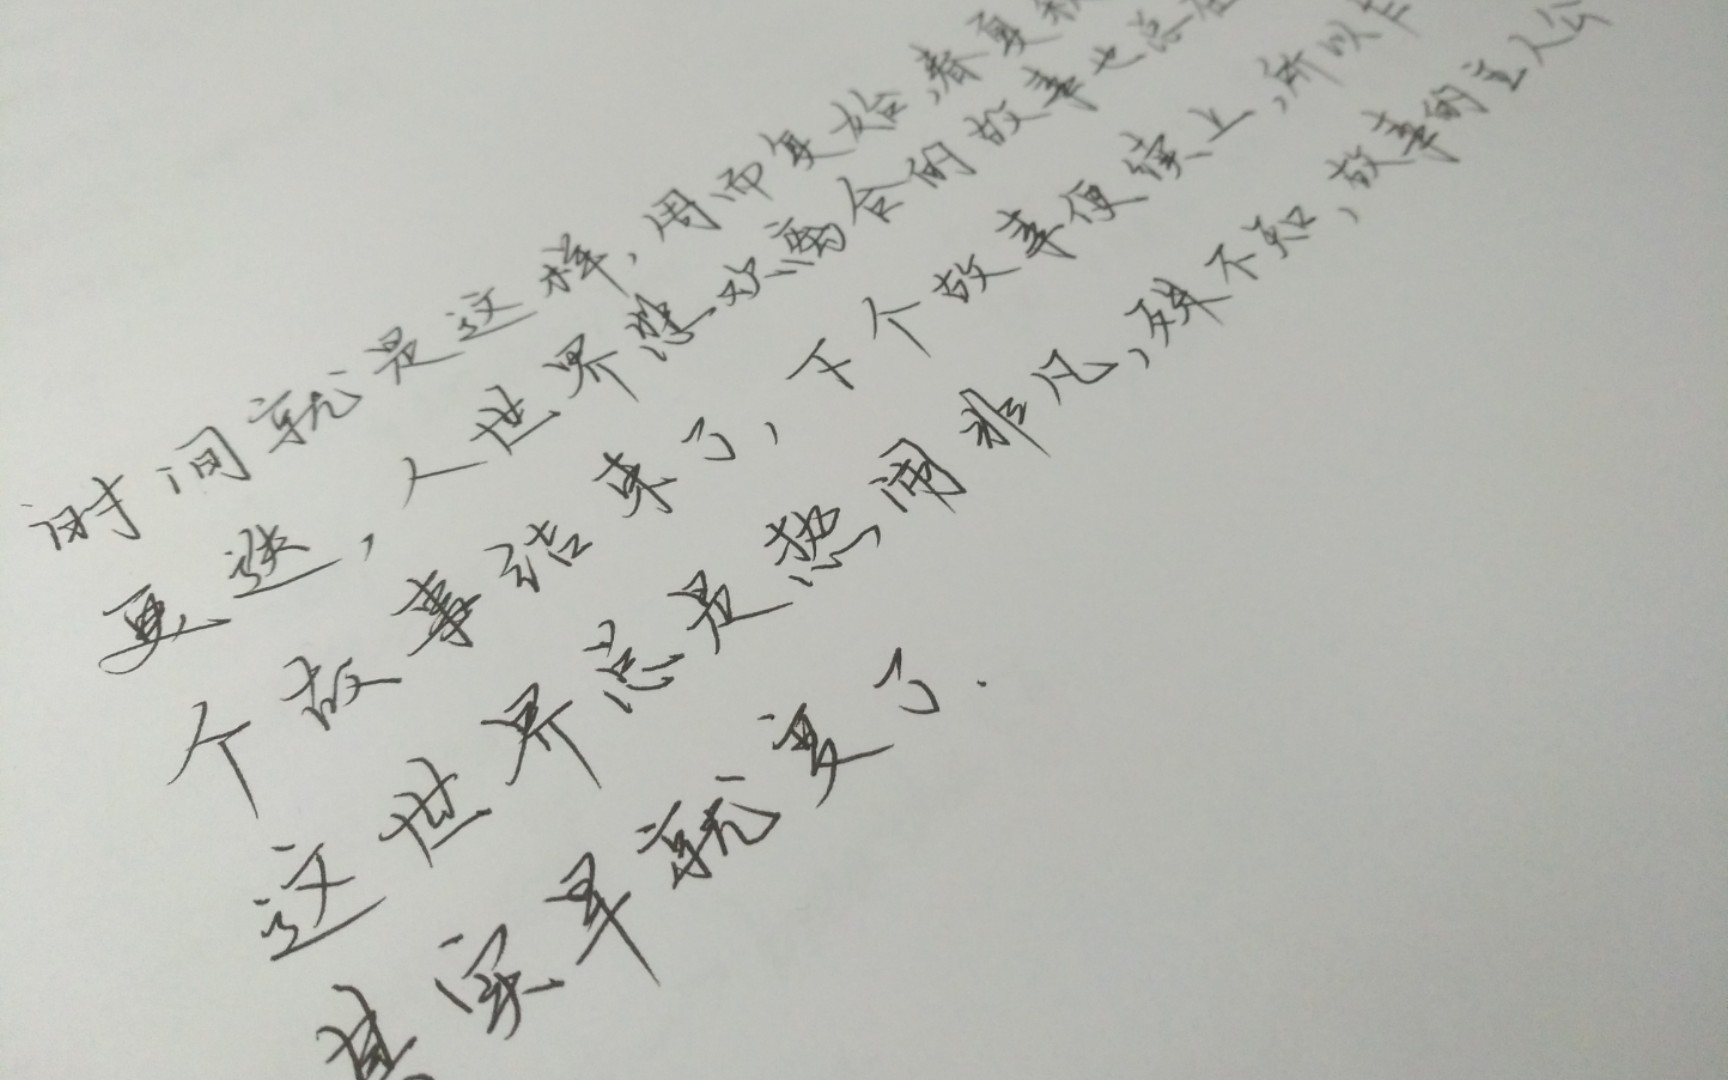 时间就是这样，周而复始，春夏秋
更迭，人世界悲欢离合的故事也总在
个故事结束了，下个故事便续上，所以在
这世界总是热闹非凡，殊不知，故事的主人公
其实早就变了.